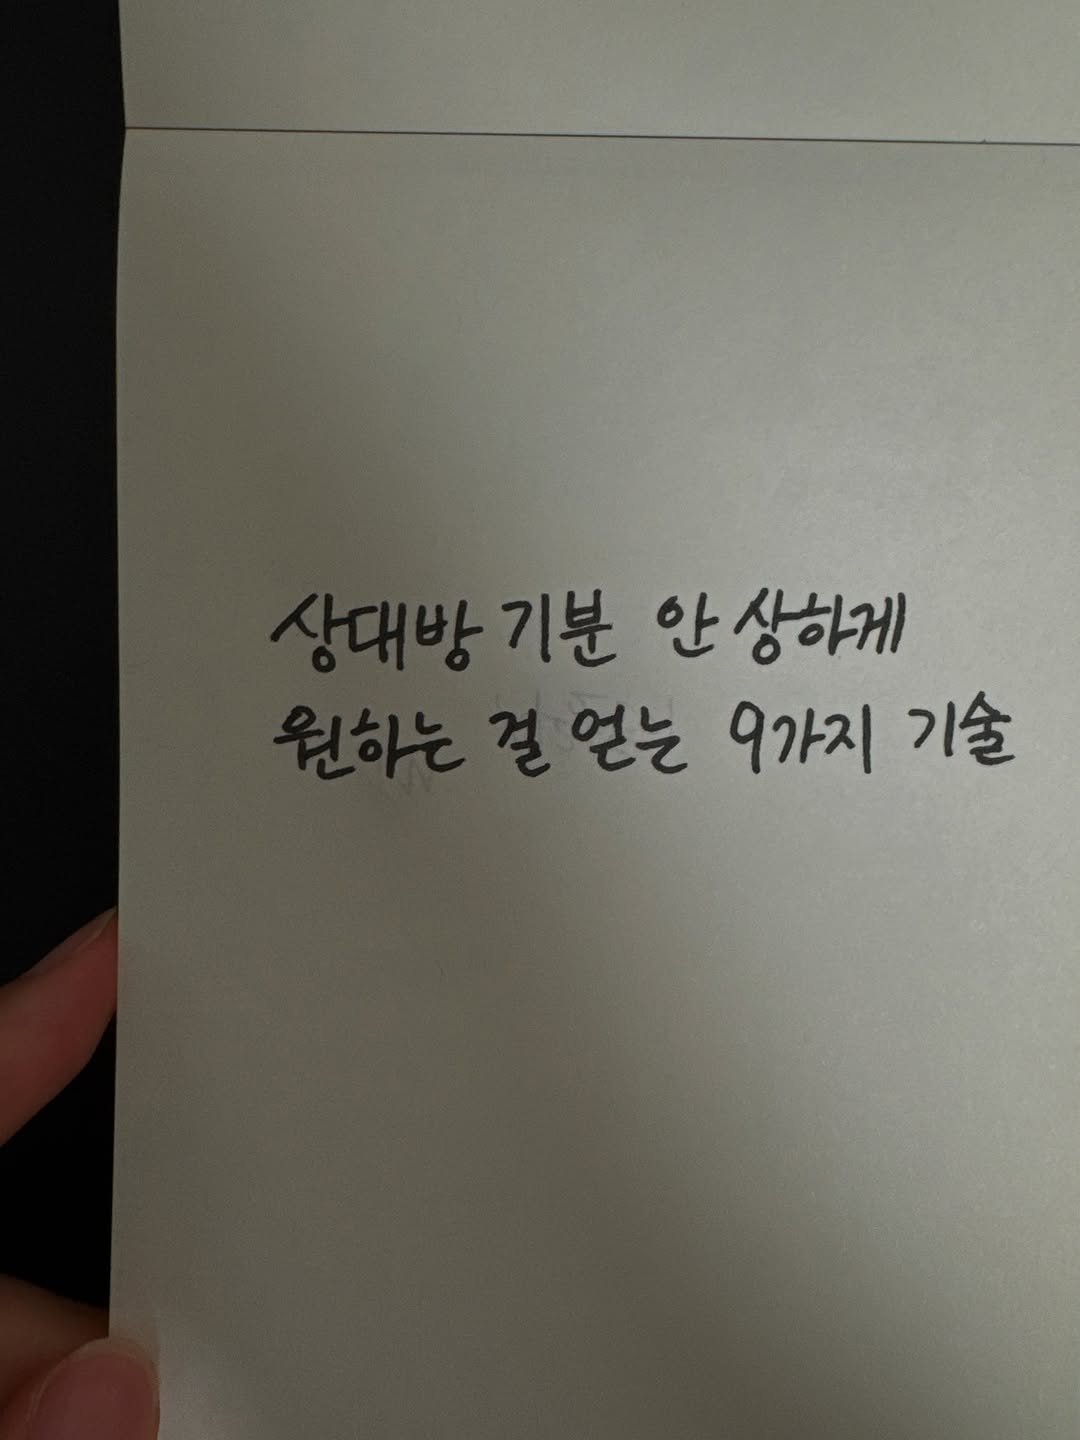 상대방 기분 안 상하게
원하는 걸 얻는 9가지 기술